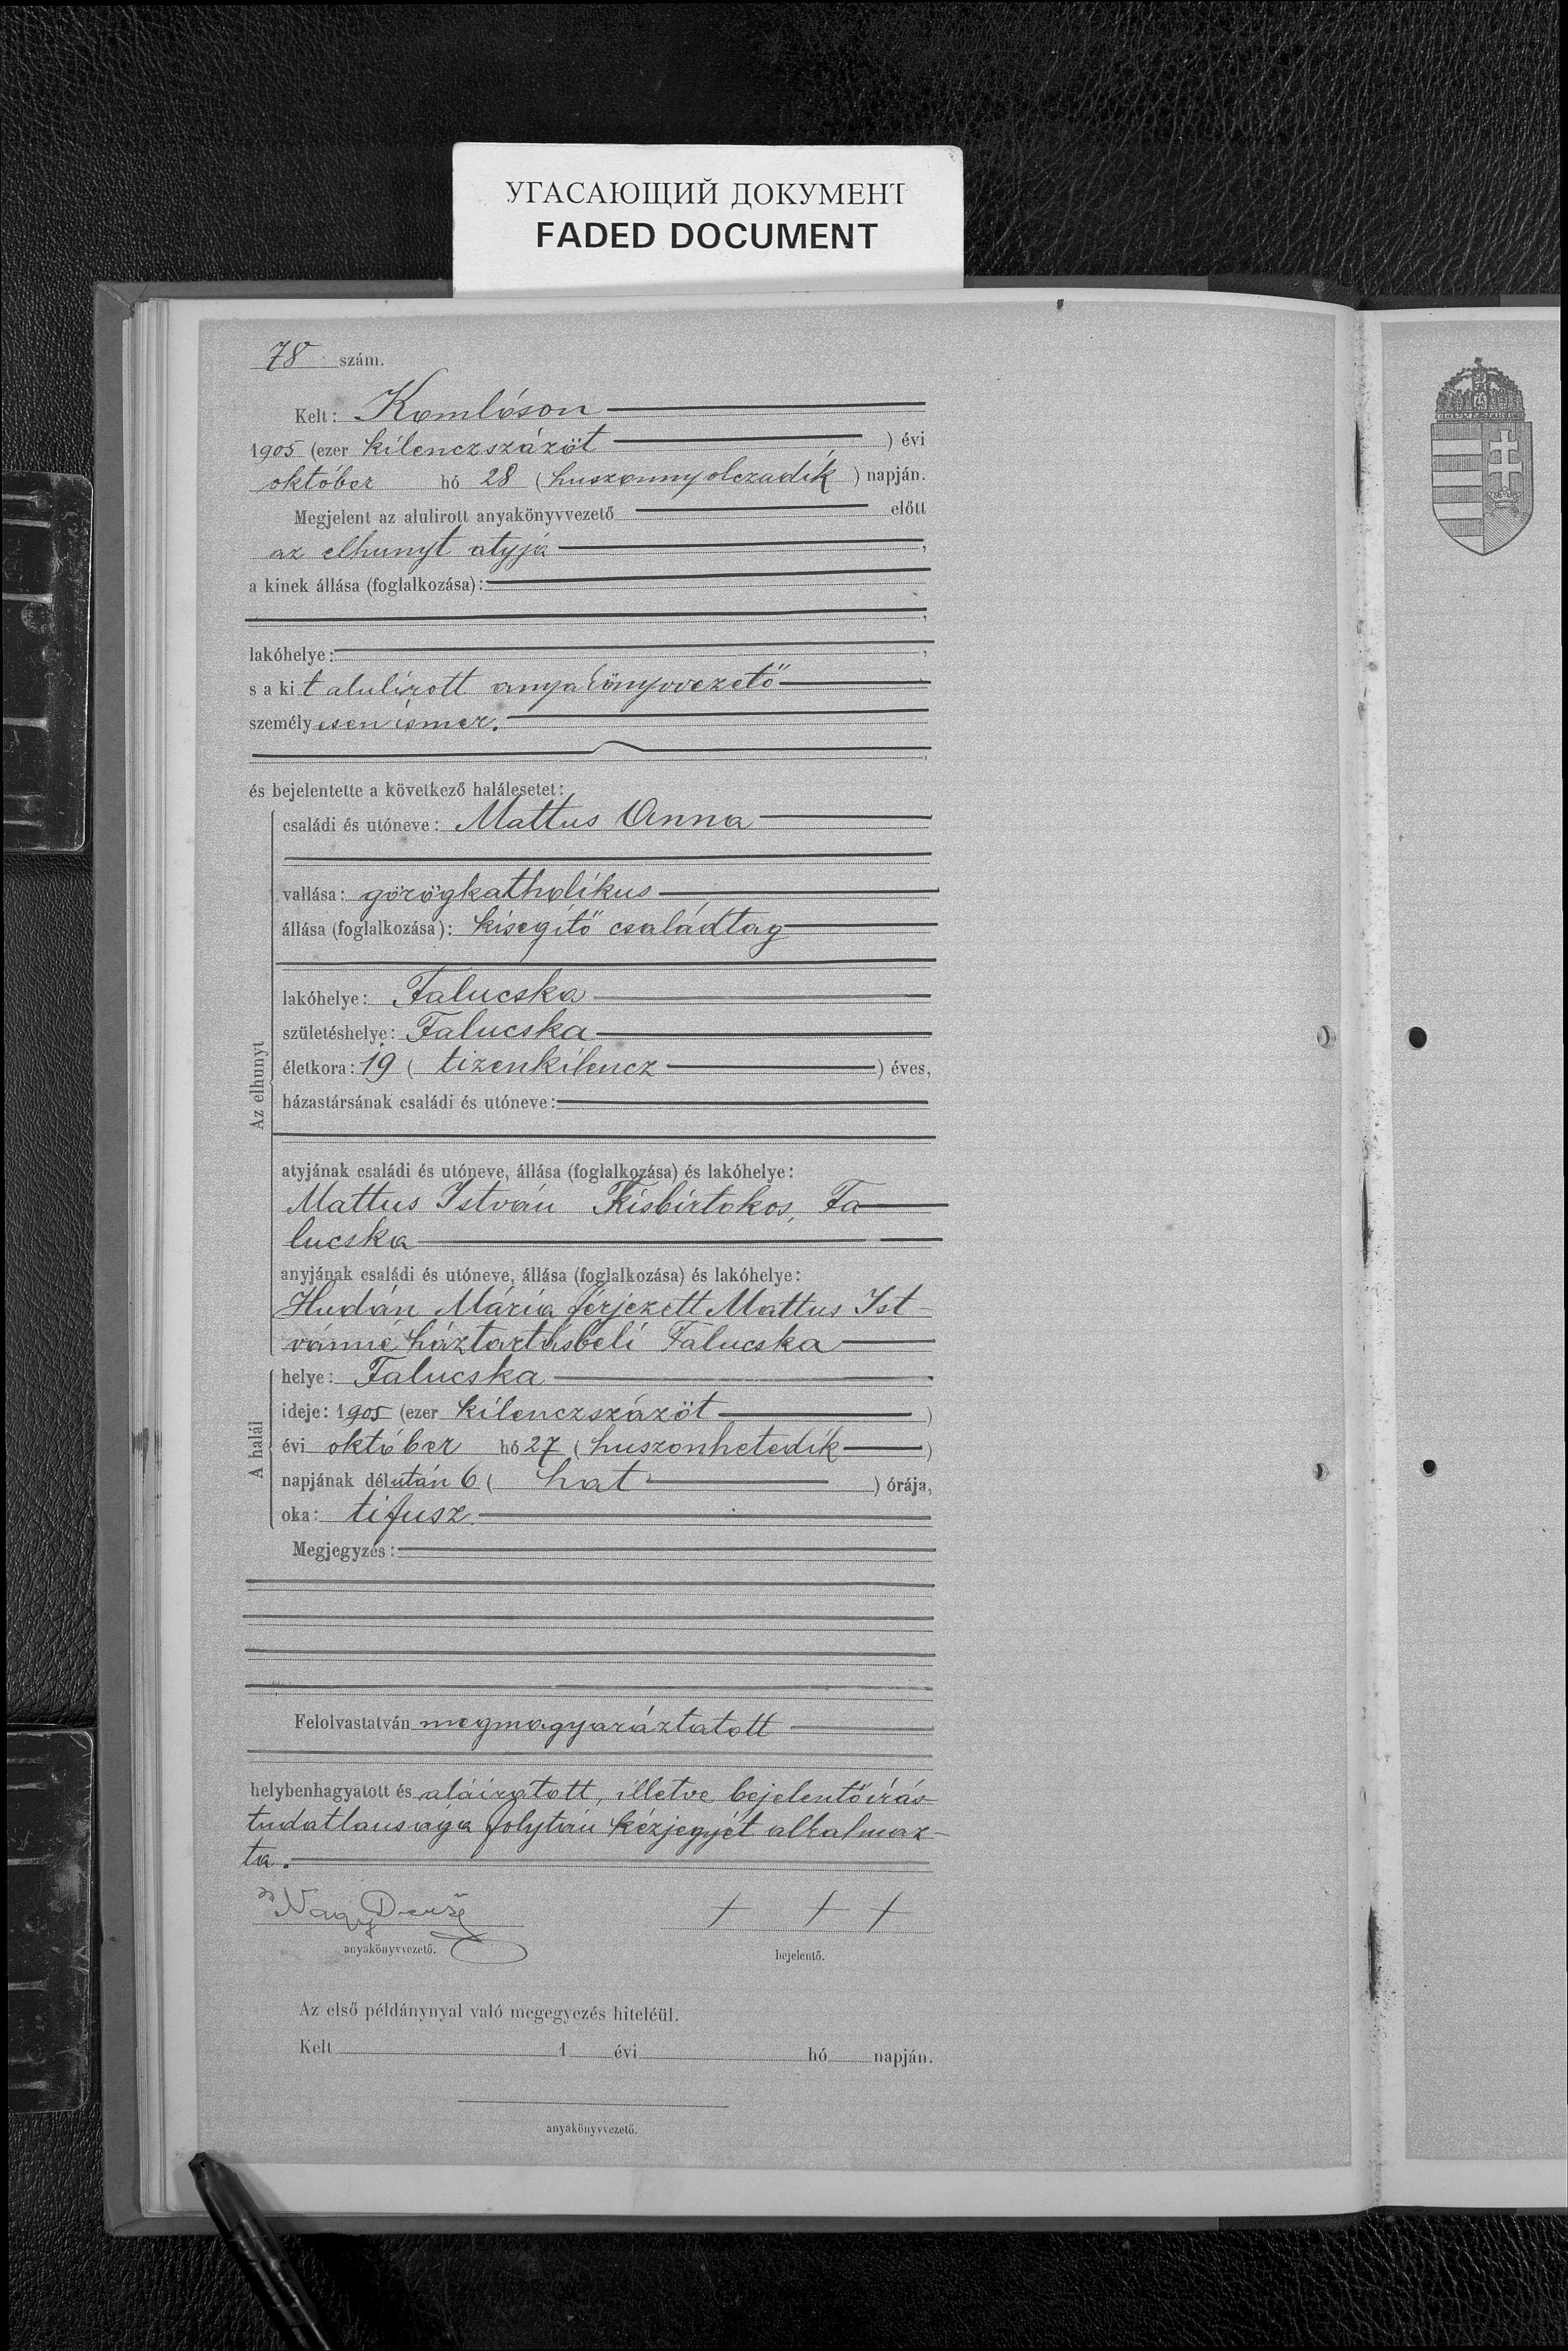 УГАСАЮЩИЙ ДОКУМЕНТ
FADED DOCUMENT
78 szám.
Kelt: Komlóson
1905 (ezer kilenczszázöt ) évi
október hó 28 (huszonnyolczadik ) napján.
Megjelent az alulirott anyakönyvvezető előtt
az elhunyt atyja ,
a kinek állása (foglalkozása):
;
lakóhelye: ,
s a kit alulírott anyakönyvvezető
személyesen ismer.
,
és bejelentette a következő halálesetet:
Az elhunyt
családi és utóneve: Mattus Anna
vallása: görögkatholikus
állása (foglalkozása): kisegítő családtag
lakóhelye: Falucska
születéshelye: Falucska
életkora: 19 ( tizenkilencz ) éves,
házastársának családi és utóneve:
atyjának családi és utóneve, állása (foglalkozása) és lakóhelye:
Mattus István Kisbirtokos, Fa-
lucska
anyjának családi és utóneve, állása (foglalkozása) és lakóhelye:
Hudán Mária férjezett Mattus Ist-
vánné háztartásbeli Falucska
A halál
helye: Falucska
ideje: 1905 (ezer kilenczszázöt )
évi október hó 27 (huszonhetedik )
napjának délután 6 ( hat ) órája,
oka: tifusz.
Megjegyzés:
Felolvastatván megmagyaráztatott
helybenhagyatott és aláiratott, illetve bejelentő írás-
tudatlansága folytán kézjegyét alkalmaz-
ta.
Nagy Dezső + + +
anyakönyvvezető. bejelentő.
Az első példánynyal való megegyezés hiteléül.
Kelt 1 évi hó napján.
anyakönyvvezető.